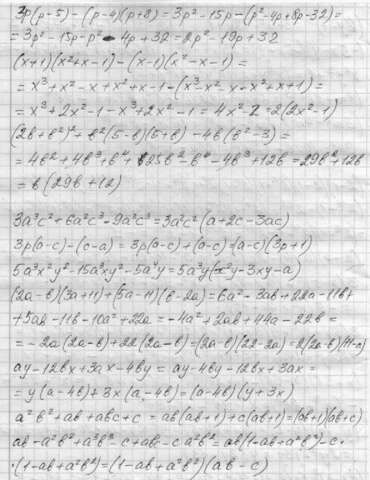 3p(p-5)-(p-4)(p+8)=3p²-15p-(p²-4p+8p-32)=
=3p²-15p-p²-4p+32=2p²-19p+32
(x+1)(x²+x-1)-(x-1)(x²-x-1)=
=x³+x²-x+x²+x-1-(x³-x²-x-x²+x+1)=
=x³+2x²-1-x³+2x²-1=4x²-2=2(2x²-1)
(2b+b²)²+b²(5-b)(5+b)-4b(b²-3)=
=4b²+4b³+b⁴+25b²-b⁴-4b³+12b=29b²+12b
=b(29b+12)
3a³c²+6a²c³-9a²c³=3a²c²(a+2c-3ac)
3p(a-c)-(c-a)=3p(a-c)+(a-c)=(a-c)(3p+1)
5a³x²y²-15a³xy²-5a⁴y=5a³y(x²y-3xy-a)
(2a-b)(3a+11)+(5a-11)(b-2a)=6a²-3ab+22a-11b+
+5ab-11b-10a²+22a=-4a²+2ab+44a-22b=
=-2a(2a-b)+22(2a-b)=(2a-b)(22-2a)=2(2a-b)(11-a)
ay-12bx+3ax-4by=ay-4by-12bx+3ax=
=y(a-4b)+3x(a-4b)=(a-4b)(y+3x)
a²b²+ab+abc+c=ab(ab+1)+c(ab+1)=(ab+1)(ab+c)
ab-a²b²+a³b³-c+abc-ca²b²=ab(1-ab+a²b²)-c·
·(1-ab+a²b²)=(1-ab+a²b²)(ab-c)